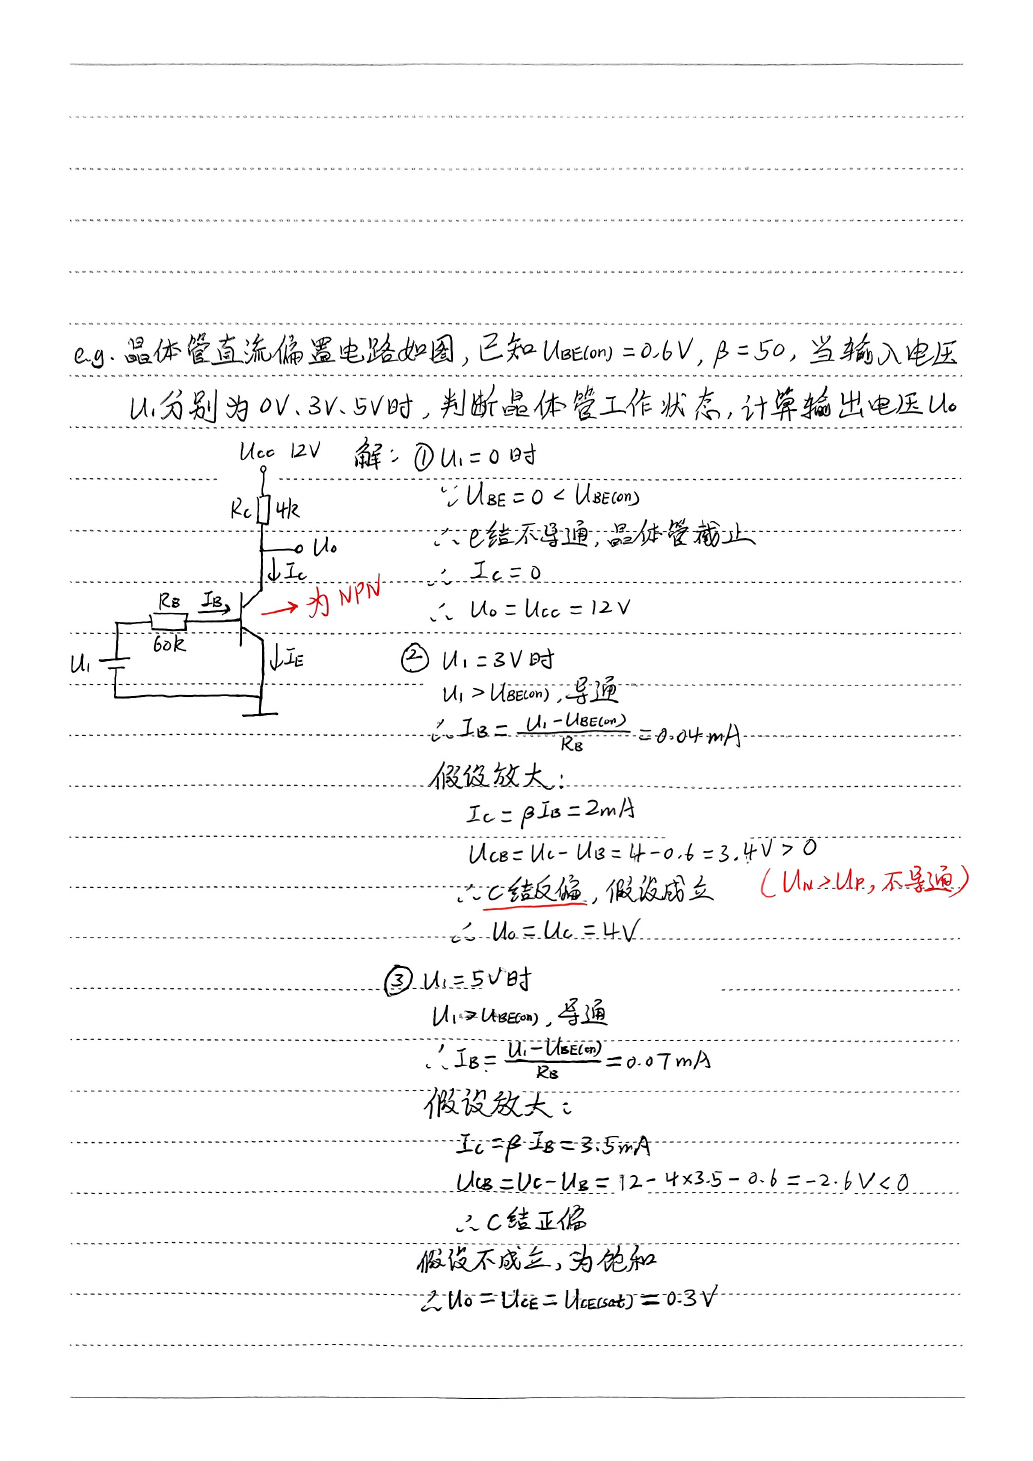 e.g. 晶体管直流偏置电路如图, 已知 UBE(on) = 0.6V, β = 50, 当输入电压
U₁分别为 0V、3V、5V时, 判断晶体管工作状态, 计算输出电压 U₀
Ucc 12V
Rc 4k
U₀
Ic
→ 为 NPN
RB IB
60k
U₁
IE
解: ① U₁ = 0 时
∵ UBE = 0 < UBE(on)
∴ e结不导通, 晶体管截止
∴ Ic = 0
∴ U₀ = Ucc = 12V
② U₁ = 3V 时
U₁ > UBE(on), 导通
∴ IB = (U₁ - UBE(on)) / RB = 0.04 mA
假设放大:
Ic = βIB = 2mA
UCB = UC - UB = 4 - 0.6 = 3.4V > 0
(UN > UP, 不导通)
∴ C结反偏, 假设成立
∴ U₀ = Uc = 4V
③ U₁ = 5V 时
U₁ > UBE(on), 导通
∴ IB = (U₁ - UBE(on)) / RB = 0.07 mA
假设放大:
Ic = β IB = 3.5mA
UCB = UC - UB = 12 - 4×3.5 - 0.6 = -2.6V < 0
∴ C结正偏
假设不成立, 为饱和
∴ U₀ = UCE = UCE(sat) = 0.3V